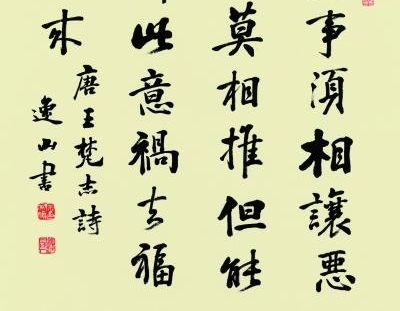 事須相讓惡
莫相推但能
此意禍去福
来
唐王梵志詩
逸山書